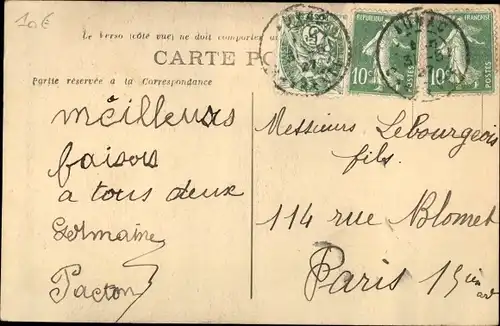 10€
Le Verso (côté vue) ne doit comporter
CARTE PO
Partie réservée à la Correspondance
RÉPUBLIQUE
10c
POSTES
10c
POSTES
méilleurs
baisers
a tous deux
Germaine
Pacton
Messieurs Lebourgeois
fils.
114 rue Blomet
Paris 15